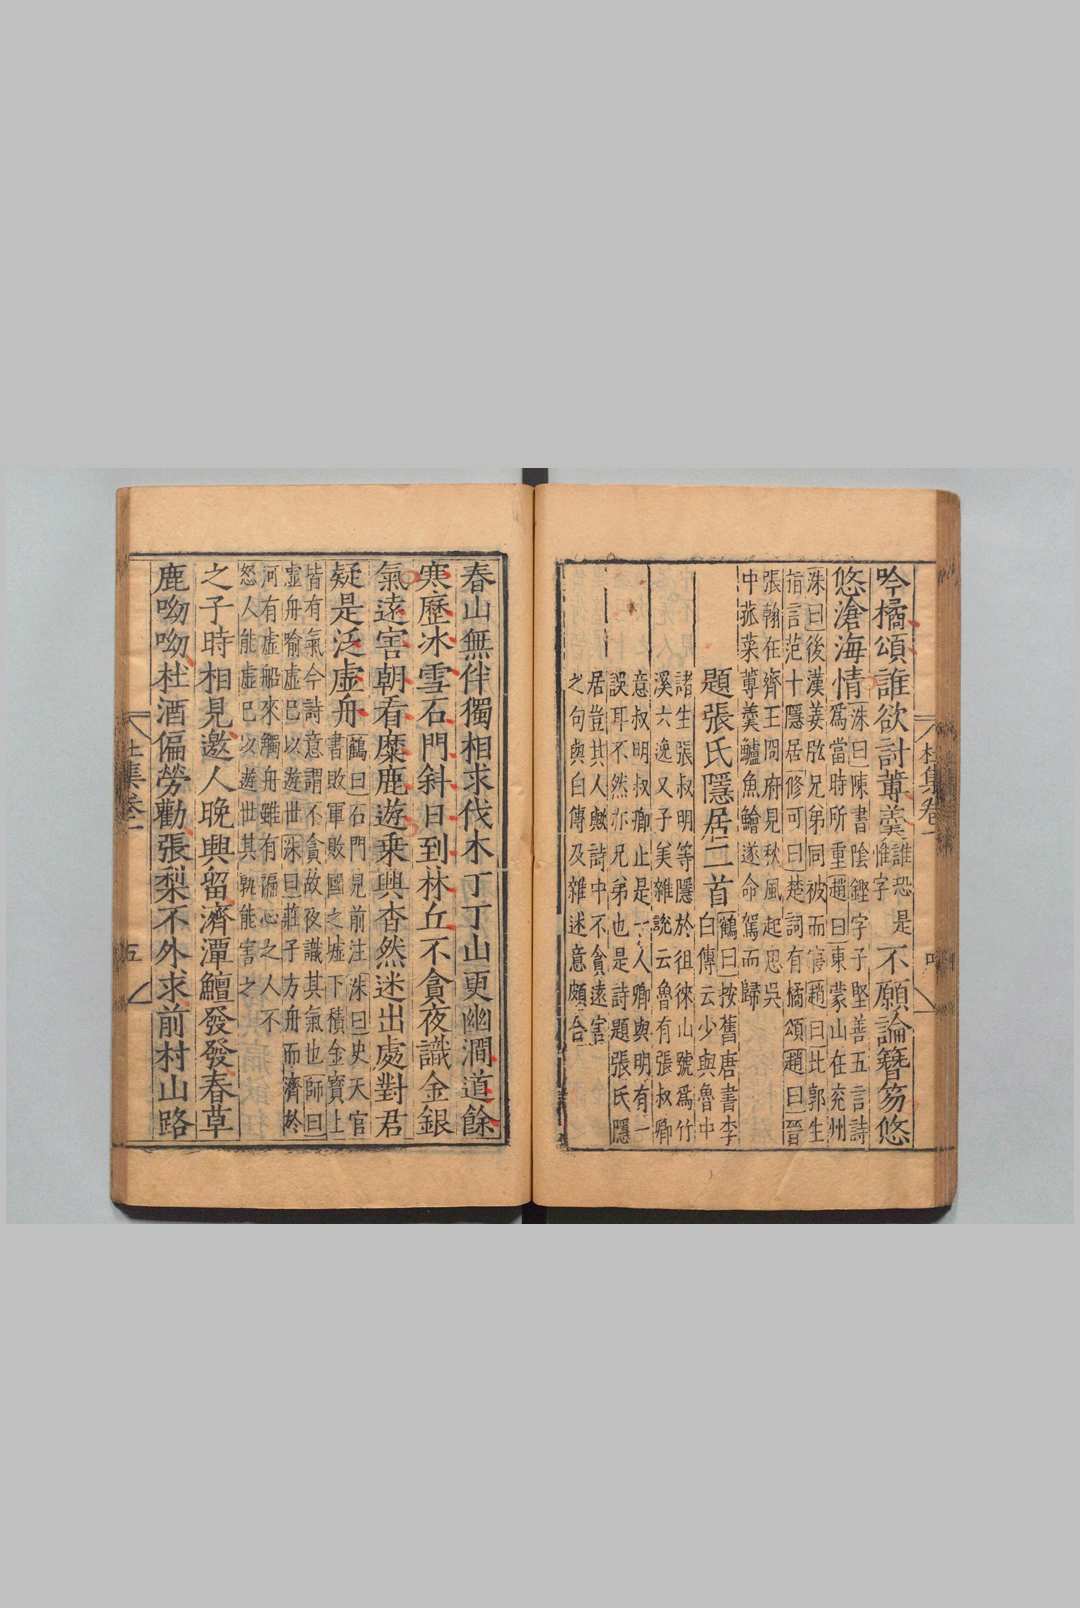 吟橘頌誰欲討蓴羮誰恐是惟字不願論簪笏悠
悠滄海情洙曰陳書陰鏗字子堅善五言詩
爲當時所重趙曰東蒙山在兖州
洙曰後漢姜肱兄弟同被而寢趙曰此郭生
指言范十隱居修可曰楚詞有橘頌趙曰晉
張翰在齊王冏府見秋風起思吳
中菰菜蓴羹鱸魚鱠遂命駕而歸
題張氏隱居二首鶴曰按舊唐書李
白傳云少與魯中
諸生張叔明等隱於徂徠山號爲竹
溪六逸又子美雜說云魯有張叔卿
意叔明叔卿止是一人卿與明有一
誤耳不然亦兄弟也是詩題張氏隱
居豈其人歟詩中不貪遠害
之句與白傳及雜述意頗合
杜集卷一
春山無伴獨相求伐木丁丁山更幽澗道餘
寒歷冰雪石門斜日到林丘不貪夜識金銀
氣遠害朝看麋鹿遊乗興杳然迷出處對君
疑是泛虛舟鶴曰石門見前注洙曰史天官
書敗軍敗國之墟下積金寶上
皆有氣今詩意謂不貪故夜識其氣也師曰
虛舟喻虛己以遊世洙曰莊子方舟而濟於
河有虛船來觸舟雖有褊心之人不
怒人能虛己以遊世其孰能害之
之子時相見邀人晚興留濟潭鱣發發春草
鹿呦呦杜酒偏勞勸張梨不外求前村山路
杜集卷一
五